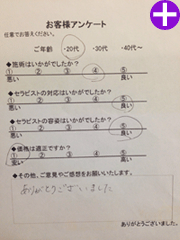 お客様アンケート
任意でお答えください。
ご年齢 ・20代 ・30代 ・40代〜
◆施術はいかがでしたか?
① ② ③ ④ ⑤
悪い 良い
◆セラピストの対応はいかがでしたか?
① ② ③ ④ ⑤
悪い 良い
◆セラピストの容姿はいかがでしたか?
① ② ③ ④ ⑤
悪い 良い
◆価格は適正ですか?
① ② ③ ④ ⑤
安い 高い
◆その他、ご意見やご感想をお願いいたします。
ありがとうございました
ありがとうございました。